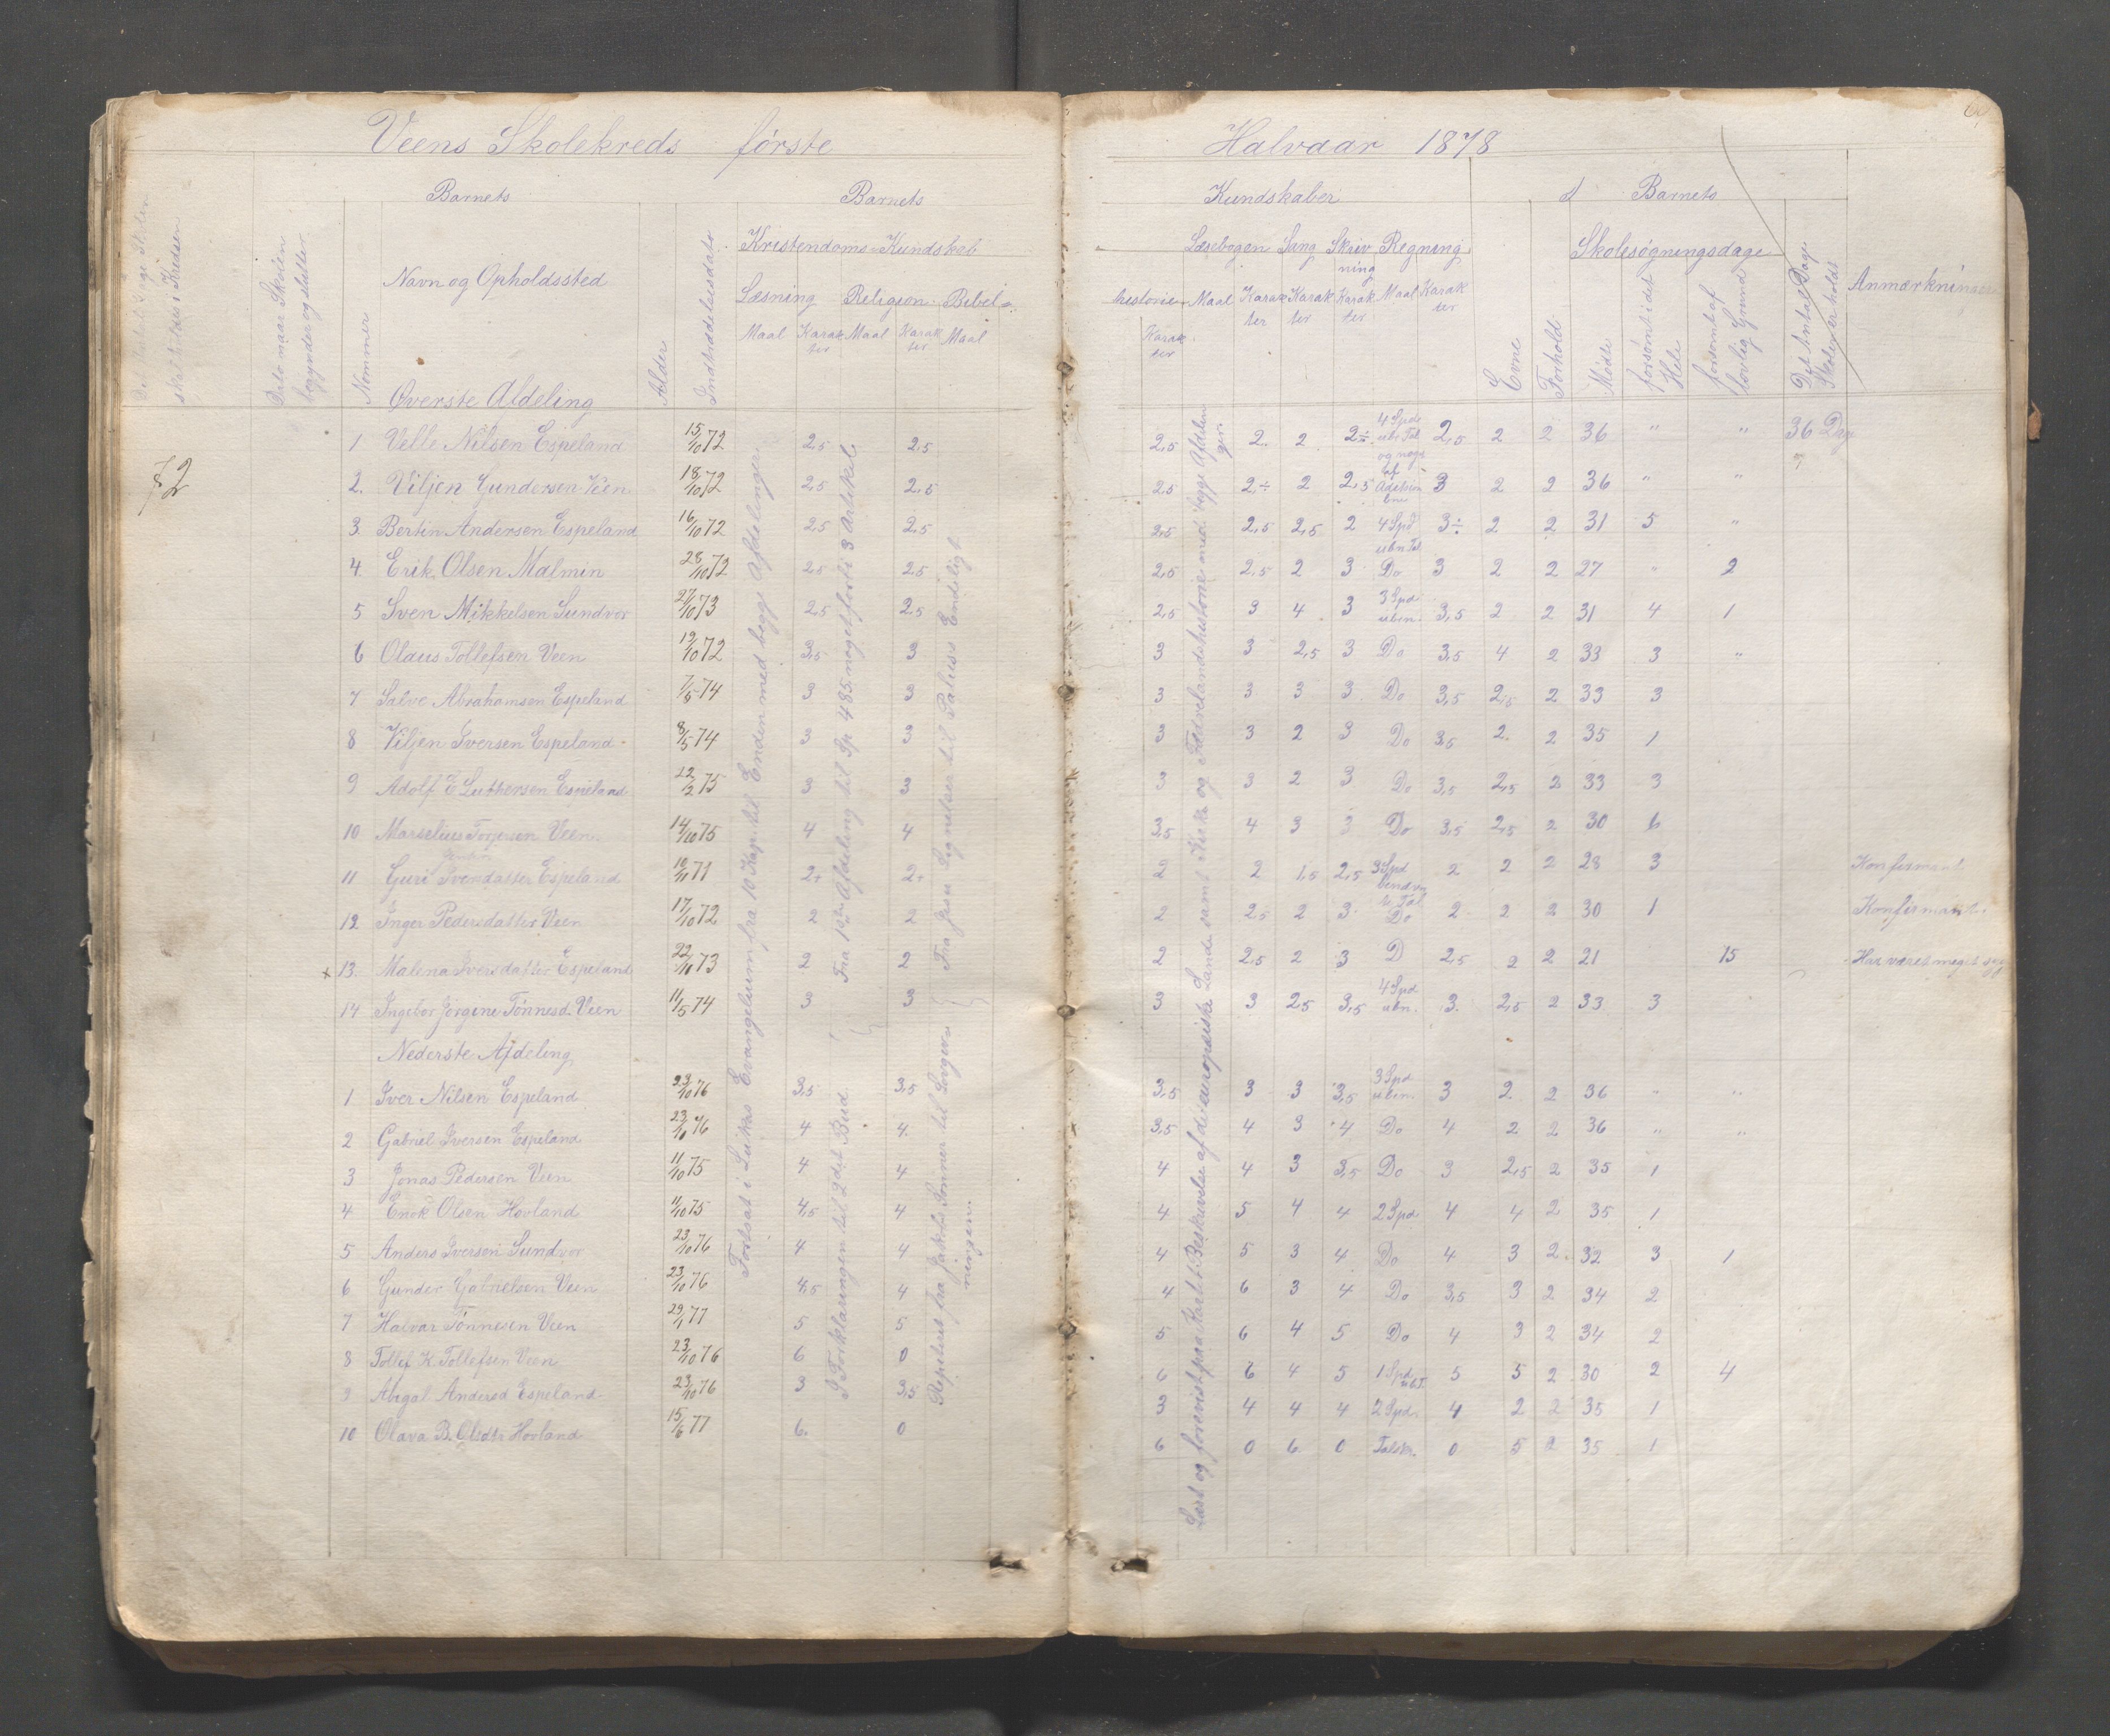 Veens Skolekreds første Halvaar 1878
Barnets Barnets Kundskaber Barnets
Det Antal Dage Skolen skal holdes i Kredsen
Dato naar Skolen begynder og slutter
Nommer
Navn og Opholdssted
Alder
Indtrædelsesdato
Kristendoms-Kundskab
Læsning Religion Bibel-
Maal Karakter Maal Karakter Maal
historie Læsebogen Sang Skrivning Regning
Karakter Maal Karakter Karakter Karakter Maal Karakter
Evne
Forhold
Skolesøgningsdage
Møde
forsømt i det Hele
forsømt af lovlig Grund
Det Antal Dage Skolen er holdt
Anmærkninger
Øverste Afdeling
72
1 Velle Nilsen Espeland 15/10 72 2,5 2,5 2,5 2. 2 2÷ 4 Spd ube Tal og noget af Addition 2,5 2 2 36 " " 36 Dage
2. Viljen Gundersen Veen 18/10 72 2,5 2,5 2,5 2÷ 2 2,5 3 2 2 36 " "
3 Bertin Andersen Espeland 16/10 72 2,5 2,5 2,5 2,5 2,5 2 4 Spd ubn Tal 3÷ 2 2 31 5 "
4 Erik Olsen Malmin 28/10 72 2,5 2,5 2,5 2,5 2 3 Do 3 2 2 27 " 2
5 Sven Mikkelsen Sundvor 27/10 73 2,5 2,5 2,5 3 4 3 3 Spd ubn. 3,5 2 2 31 4 1
6 Olaus Tollefsen Veen 19/10 72 3,5 3 3 3 2,5 3 Do 3,5 4 2 33 3 "
7 Salve Abrahamsen Espeland 7/5 74 3 3 3 3 3 3 Do 3,5 2,5 2 33 3
8 Viljen Iversen Espeland 8/5 74 3 3 3 3 2 3 Do 3,5 2. 2 35 1
9 Adolf E Luthersen Espeland 22/2 75 3 3 3 3 2 3 Do 3,5 2,5 2 33 3
10 Marselius Torjersen Veen 14/10 75 4 4 3,5 4 3 3 Do 3,5 2,5 2 30 6
11 Guri Svendatter Espeland 10/11 71 2÷ 2÷ 2 2 1,5 2,5 3 Spd 2 2 2 28 3 Konfirmant
12 Inger Pedersdatter Veen 17/10 72 2 2 2 2,5 2 3 Do 2 2 2 30 1 Konfirmant.
+ 13. Malena Iversdatter Espeland 22/10 73 2 2 2 2,5 2 3 D 2,5 2 2 21 15 Har været meget syg
14 Ingebor Jørgine Tønnesd. Veen 11/5 74 3 3 3 3 2,5 3,5 4 Spd ubn. 3. 2,5 2 33 3
Nederste Afdeling
1 Iver Nilsen Espeland 23/10 76 3,5 3,5 3,5 3 3 3,5 3 Spd ubn. 3 2. 2 36 " "
2 Gabriel Iversen Espeland 23/10 76 4 4 3,5 4 3 4 Do 4 2 2 36 " "
3 Jonas Pedersen Veen 11/10 75 4 4 4 4 3 3,5 Do 3 2,5 2 35 1
4 Enok Olsen Hovland 11/10 75 4,5 4 4 5 4 4 2 Spd 4 4 2 35 1
5 Anders Iversen Sundvor 23/10 76 4 4 4 5 3 4 Do 4 3 2. 32 3 1
6 Gunder Gabrielsen Veen 23/10 76 4,5 4 4 6 3 4 Do 3,5 3 2 34 2
7 Halvar Tønnesen Veen 29/1 77 5 5 5 6 4 5 Do 4 3 2 34 2
8 Tollef K Tollefsen Veen 23/10 76 6 0 6 6 4 5 1 Spd ubT. 5 5 2 30 2 4
9 Abigal Andersd Espeland 23/10 76 3 3,5 3 4 4 4 2 Spd. 4 2 2 35 1
10 Olava B. Olsdtr Hovland 15/6 77 6. 0 6 0 6 0 Talskr. 0 5 2 35 1
Fortsat i Lukas Evangelium fra 10 Kap. til Enden med begge Afdelinger.
Fra 1ste Afdeling til Sp 485 noget forbi 3 Artikel
I Forklaringen til 2det Bud.
Fra Jesu Lignelser til Paulus's Endeligt
Repeteret fra Jakobs Sønner til Lovgivningen.
Læst og forevist paa Kartet Beskrivelse af de europæiske Lande samt Kirke og Fædrelandshistorie med begge Afdelinger.